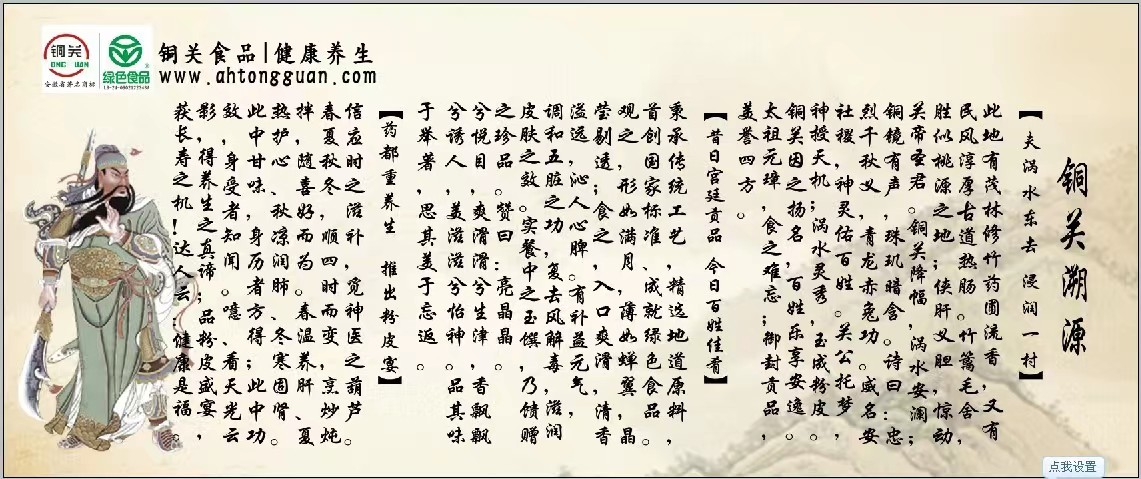 铜关
TONG GUAN
安徽省著名商标
绿色食品
铜关食品|健康养生
www.ahtongguan.com
铜关溯源
【夫涡水东去 浸润一村】
此地有茂林修竹药圃流香，又有
民风淳厚古道热肠。竹篱毛舍，
胜似桃源之地；侠肝义胆，惊动
关帝圣君。铜关降幅，涡水安澜；
铜镜有声，珠玑暗含。诗曰：忠
烈千秋义，青龙赤兔功。威名安
社稷，神灵佑百姓。关公托梦，
神授天机；涡水灵秀，玉成粉皮。
铜关因之扬名，百姓乐享安逸。
太祖元璋，食之难忘；御封贡品，
美誉四方。
【昔日宫廷贡品 今日百姓佳肴】
秉承传统工艺，精选地道原料，
首创国家标准、成就绿色食品。
观之，形如满月、薄如蝉翼、晶
莹剔透；食之，入口爽滑，清香
溢远，沁人心脾。有补益元气，
调和五脏之功，复去风解毒、滋润
皮肤之效。实餐中之玉馔，乃馈赠
之珍品。赞曰：亮晶晶
兮悦目，爽滑滑兮生津，香飘飘
兮诱人，美滋滋兮怡神。品其味
于举著，思其美于忘返。
【药都重养生 推出粉皮宴】
信应时之滋补，觉神医之葫芦。
春夏秋冬，顺四时而变，烹炒炖
拌，随喜好而为。春温养肝、夏
热护心、秋凉润肺、冬寒固肾。
此中甘味，身历者方得；此中功
效，身受者知闻。噫、看天光云
影，得养生之真谛；品粉皮盛宴，
获长寿之机！达人云：健康是福。
点我设置